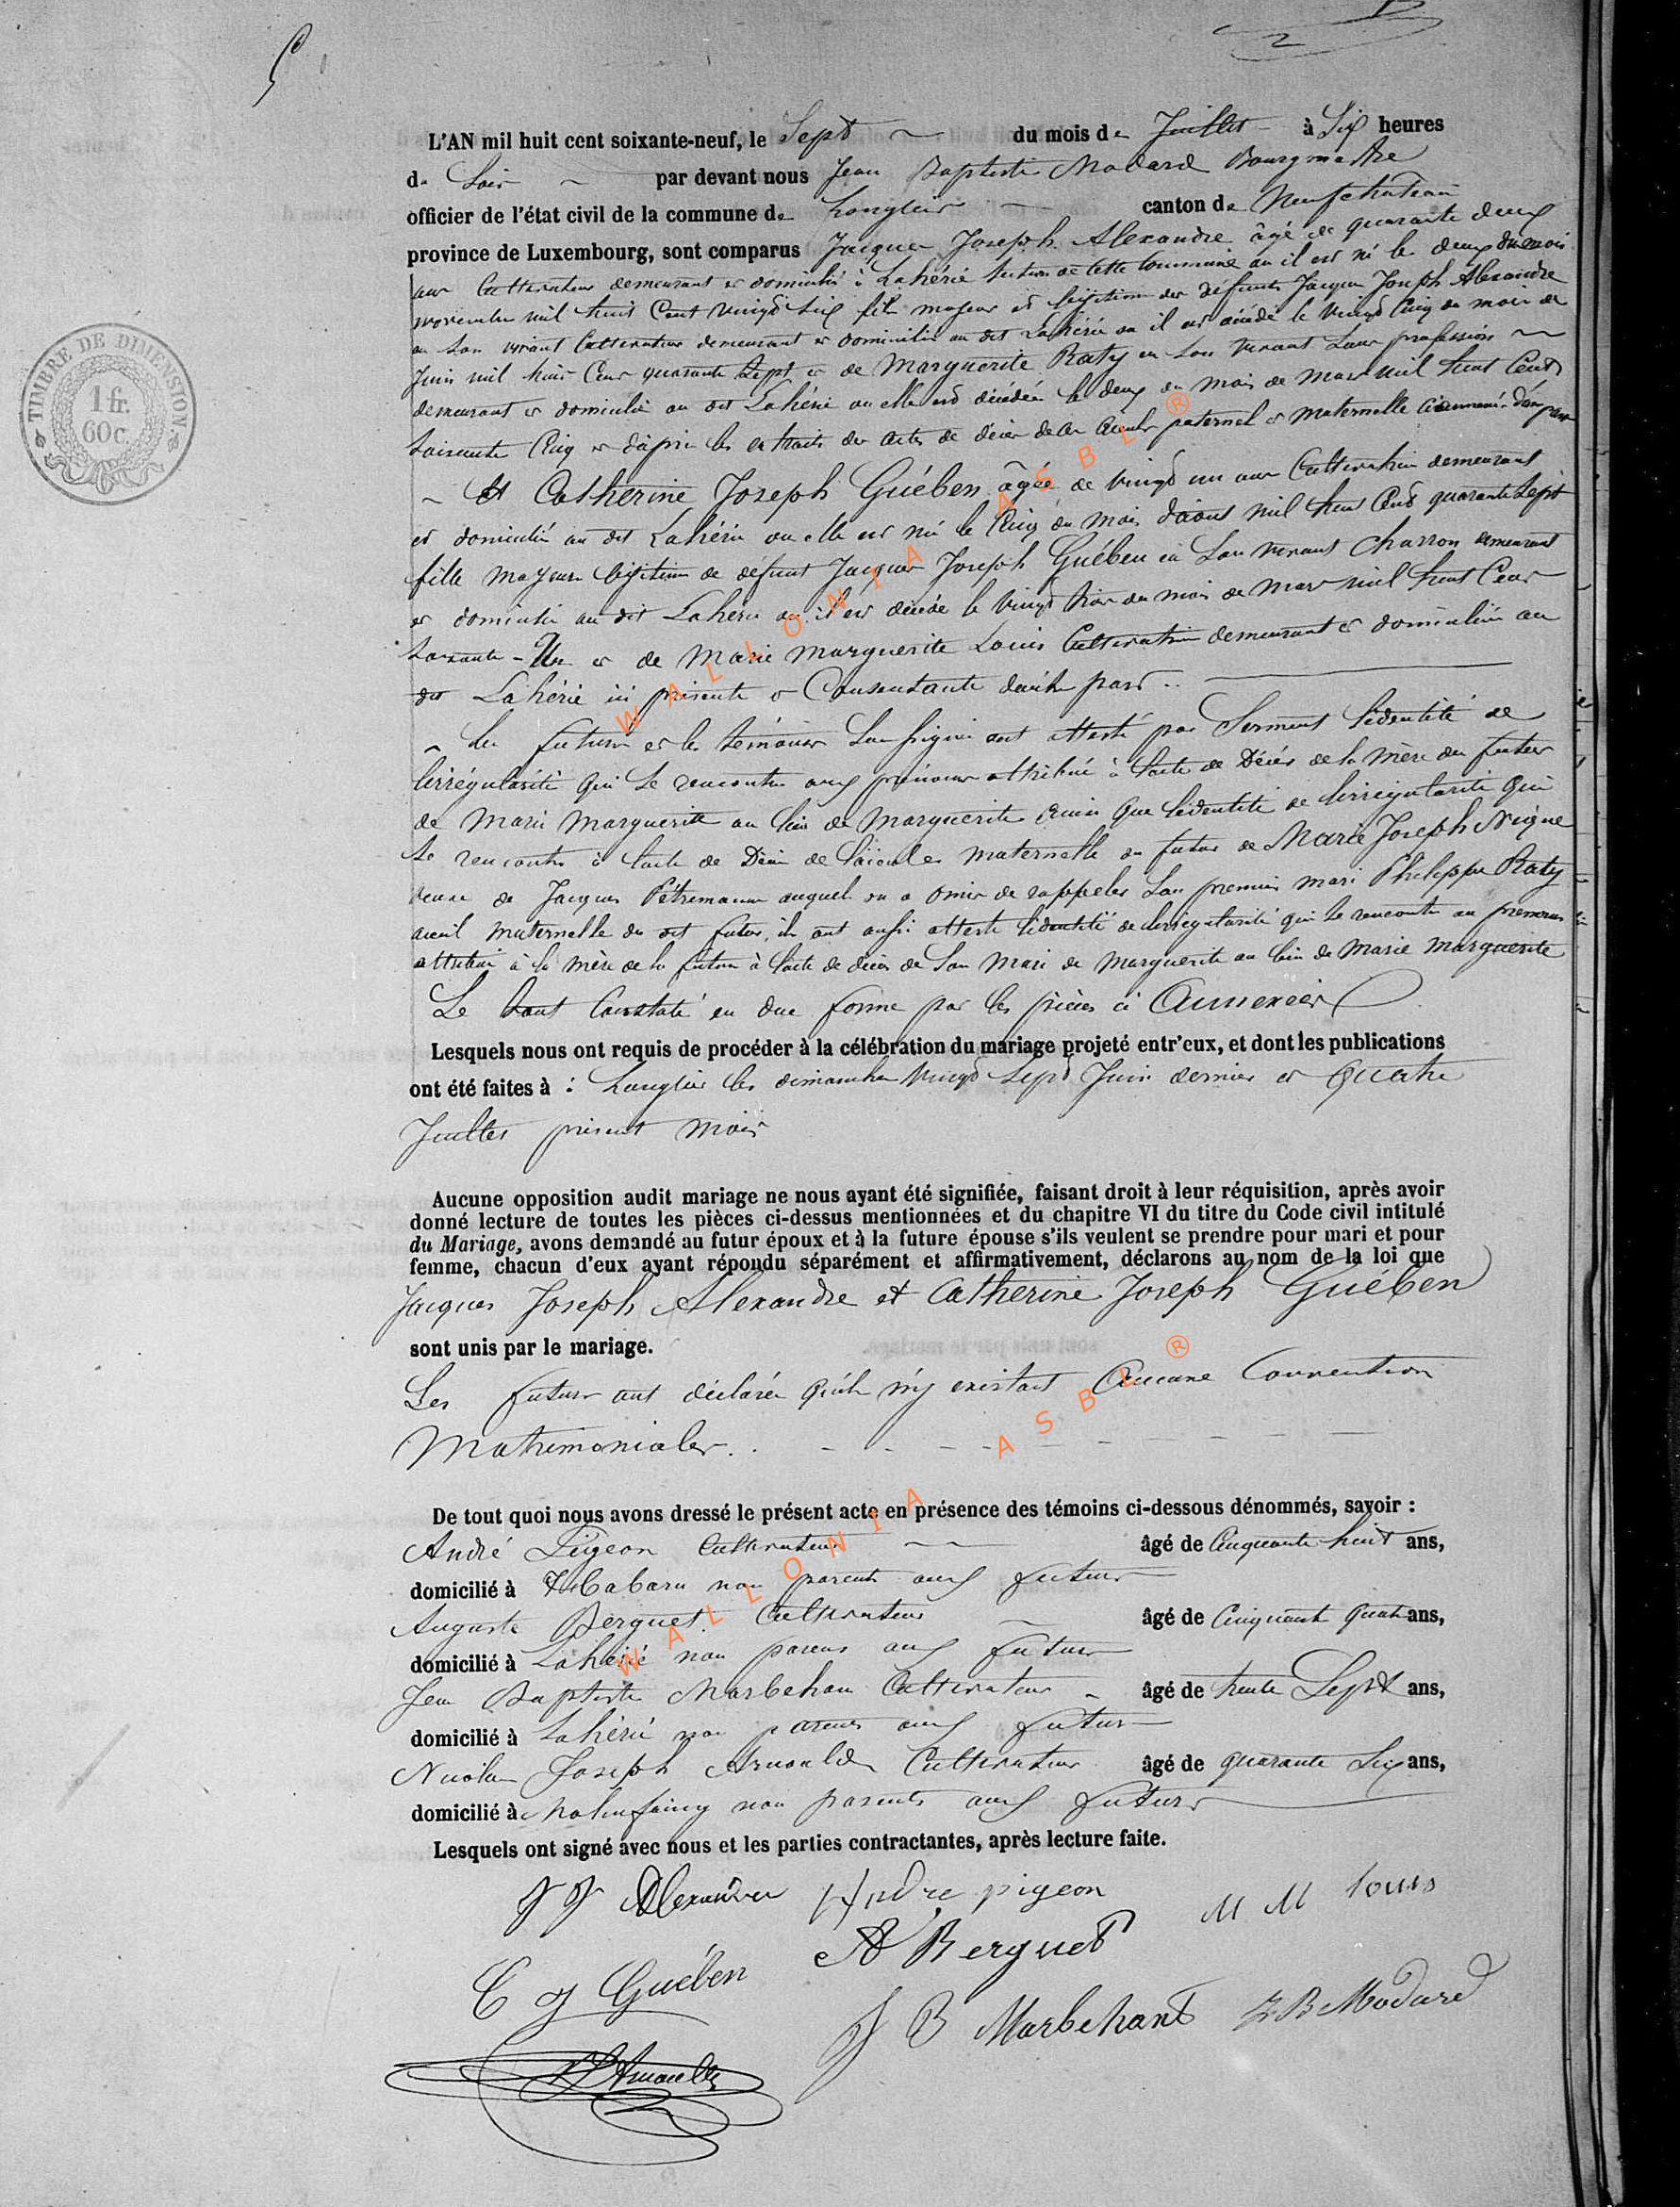 5
2
TIMBRE DE DIMENSION
1 fr.
60 c.
L'AN mil huit cent soixante-neuf, le Sept du mois de Juillet à Six heures
de Soir par devant nous Jean Baptiste Modard Bourgmestre
officier de l'état civil de la commune de Longlier canton de Neufchateau
province de Luxembourg, sont comparus Jacques Joseph Alexandre âgé de quarante deux
ans Cultivateur demeurant et domicilié à Lahérie Section de cette Commune ou il est né le deux du mois
novembre mil huit Cent vingt Six fils majeur et légitime des défunts Jacques Joseph Alexandre
en Son vivant Cultivateur demeurant et domicilié au dit Lahérie ou il est décédé le vingt Cinq du mois de
Juin mil huit Cent quarante Sept et de Marguerite Raty en Son vivant Sans profession
demeurant et domicilié au dit Lahérie ou elle est décédée le deux du mois de mars mil huit Cent
Soixante Cinq et d'après les extraits des actes de décès de Ses aieuls paternel et maternelle
Et Catherine Joseph Guében âgée de vingt un ans Cultivatrice demeurant
et domiciliée au dit Lahérie ou elle est née le Cinq du mois d'aout mil huit Cent quarante Sept
fille majeure légitime de défunt Jacques Joseph Guében en Son vivant Charron demeurant
et domicilié au dit Lahérie ou il est décédé le vingt trois du mois de mars mil huit Cent
Soixante-Un et de Marie Marguerite Louis Cultivatrice demeurant et domiciliée au
dit Lahérie ici présente et Consentante d'autre part
Les futurs et les témoins Soussignés ont attesté par Serment l'identité de
l'irrégularité qui Se rencontre aux prénoms attribué à l'acte de Décès de la mère du futur
de Marie Marguerite au lieu de Marguerite ainsi que l'identité de l'irrégularité qui
Se rencontre à l'acte de Décès de l'aieule maternelle du futur de Marie Joseph Nigne
veuve de Jacques Pétremann auquel on a omis de rappeler Son premier mari Philippe Raty
aieul maternelle du dit futur, ils ont aussi attesté l'identité de l'irrégularité qui Se rencontre au prénoms
attribué à la mère de la future à l'acte de décès de Son Mari de Marguerite au lieu de Marie Marguerite
Le tout Constaté en due forme par les pièces ci Annexées
Lesquels nous ont requis de procéder à la célébration du mariage projeté entr'eux, et dont les publications
ont été faites à : Longlier les dimanches vingt Sept Juin dernier et Quatre
Juillet présent mois
Aucune opposition audit mariage ne nous ayant été signifiée, faisant droit à leur réquisition, après avoir
donné lecture de toutes les pièces ci-dessus mentionnées et du chapitre VI du titre du Code civil intitulé
du Mariage, avons demandé au futur époux et à la future épouse s'ils veulent se prendre pour mari et pour
femme, chacun d'eux ayant répondu séparément et affirmativement, déclarons au nom de la loi que
Jacques Joseph Alexandre et Catherine Joseph Guében
sont unis par le mariage.
Les futurs ont déclarés qu'il n'y existait Aucune Convention
Matrimoniales
De tout quoi nous avons dressé le présent acte en présence des témoins ci-dessous dénommés, savoir :
André Pigeon Cultivateur âgé de Cinquante huit ans,
domicilié à non parents aux futurs
Auguste Berguet Cultivateur âgé de Cinquante Quatre ans,
domicilié à Lahérié non parens aux futurs
Jean Baptiste Marbehan Cultivateur âgé de trente Sept ans,
domicilié à Lahérié non parens aux futurs
Nicolas Joseph Arnould Cultivateur âgé de quarante Six ans,
domicilié à Molinfaing non parents aux futurs
Lesquels ont signé avec nous et les parties contractantes, après lecture faite.
J J Alexandre Andre pigeon M M louis
C J Guében A Berguet
J B Marbehant J B Modard
Arnould
WALLONIA ASBL ®
WALLONIA ASBL ®